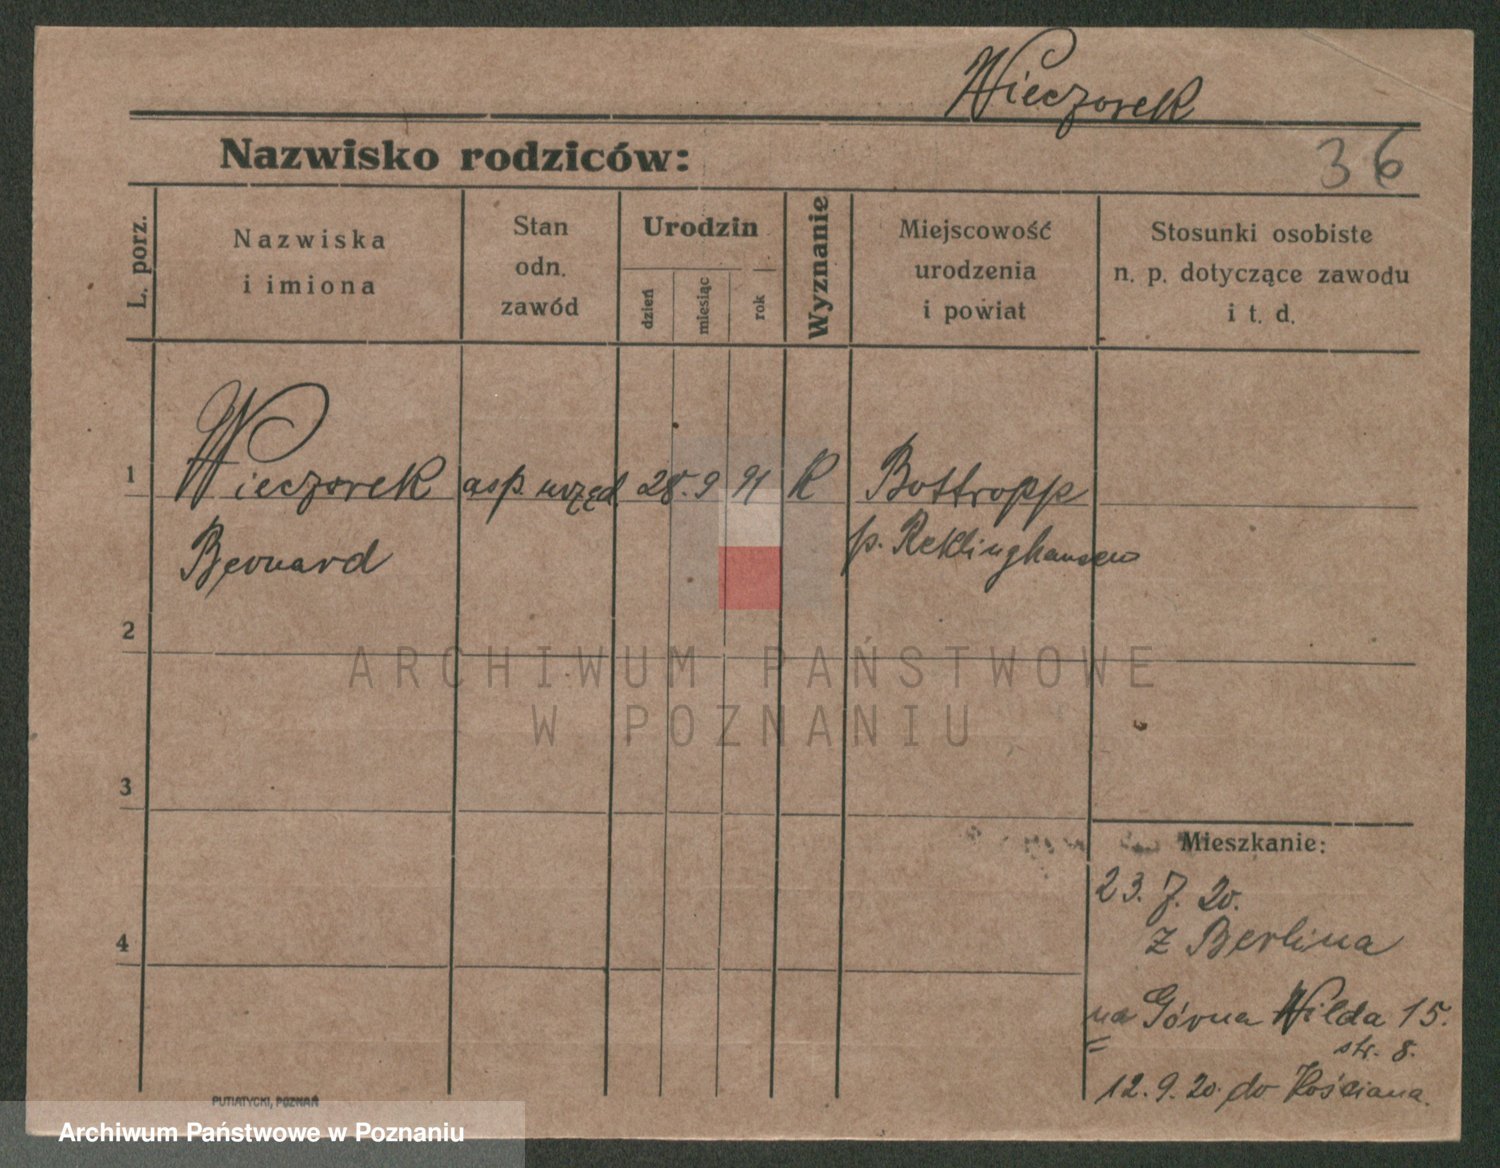 Wieczorek
Nazwisko rodziców:
36
L. porz.
Nazwiska
i imiona
Stan
odn.
zawód
Urodzin
dzień
miesiąc
rok
Wyznanie
Miejscowość
urodzenia
i powiat
Stosunki osobiste
n. p. dotyczące zawodu
i t. d.
1 Wieczorek asp. urzęd. 28. 9 91 K Bottropp
Bernard p. Reklinghausen
2
ARCHIWUM PAŃSTWOWE
W POZNANIU
3
Mieszkanie:
23. 7. 20.
4
z Berlina
na Górna Wilda 15.
str. 8.
12. 9. 20. do Kościana.
PUTIATYCKI, POZNAŃ
Archiwum Państwowe w Poznaniu